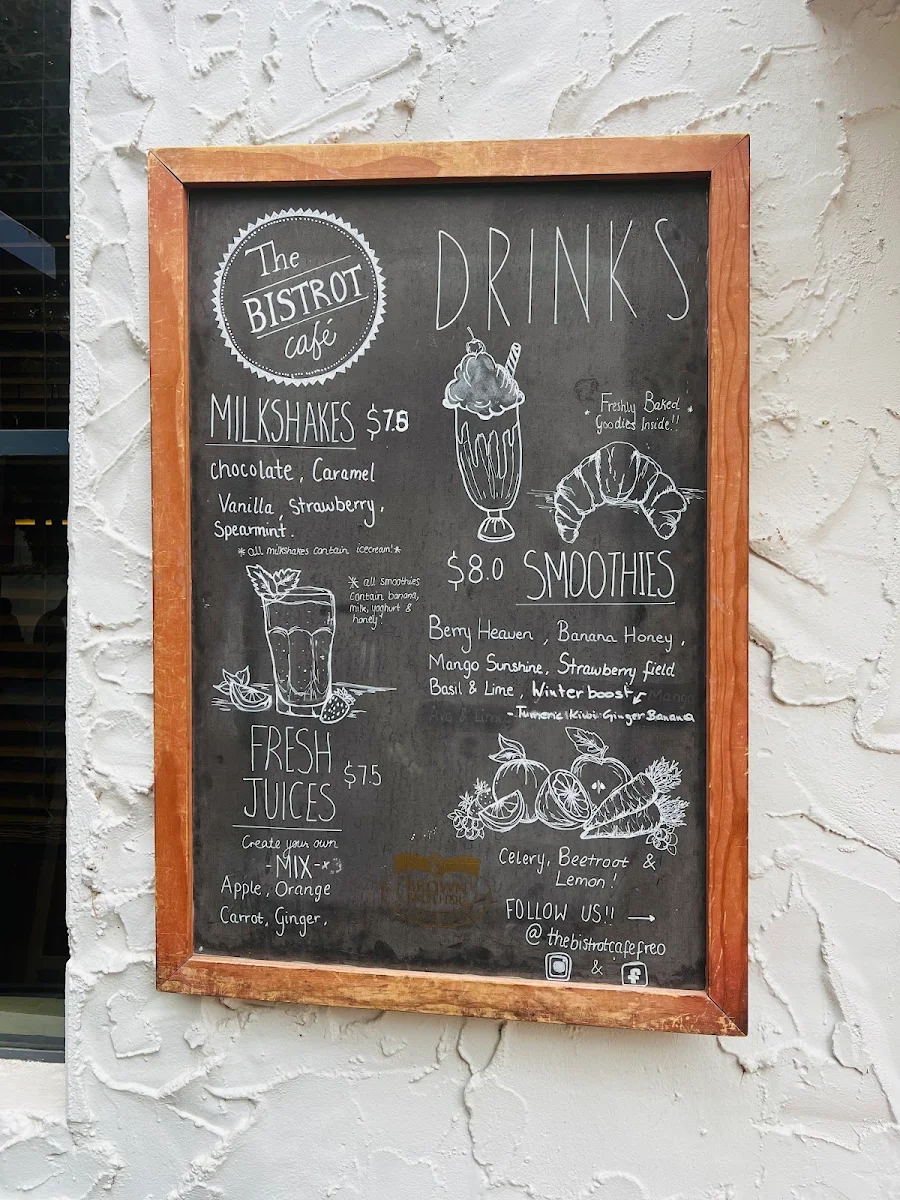 The
BISTROT
café
DRINKS
MILKSHAKES
chocolate, Caramel
Vanilla, Strawberry,
Spearmint.
*all milkshakes contain icecream!*
* Freshly Baked *
Goodies Inside!!
* all smoothies
contain banana,
milk, yoghurt &
honey!
$8.0 SMOOTHIES
Berry Heaven, Banana Honey,
Mango Sunshine, Strawberry field
Basil & Lime, Winterboost Mango
Avo & Lime - Tumeric Kiwi Ginger Banana
FRESH
JUICES
$7.5
Create your own
-MIX-x3
Apple, Orange
Carrot, Ginger,
Celery, Beetroot &
Lemon!
BROWN
BROTHERS
FOLLOW US!! →
@thebistrotcafefreo
&